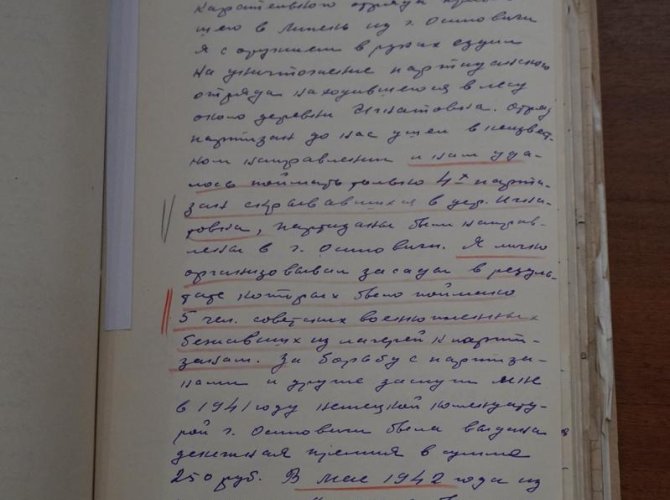 карательного отряда
щего в Липень из г. Осиповичи
я с оружием в руках ездил
на уничтожение партизанского
отряда находившегося в лесу
около деревни Игнатовка. Отряд
партизан до нас ушел в неизвест-
ном направлении и нам уда-
лось поймать только 4х парти-
зан скрывавшихся в дер. Игна-
товка, партизаны были направ-
лены в г. Осиповичи. Я лично
организовывал засады в резуль-
тате которых было поймано
5 чел. советских военнопленных
бежавших из лагерей к парти-
занам. За борьбу с партиза-
нами и другие заслуги мне
в 1941 году немецкой комендату-
рой г. Осиповичи была выдана
денежная премия в сумме
250 руб. В мае 1942 года из